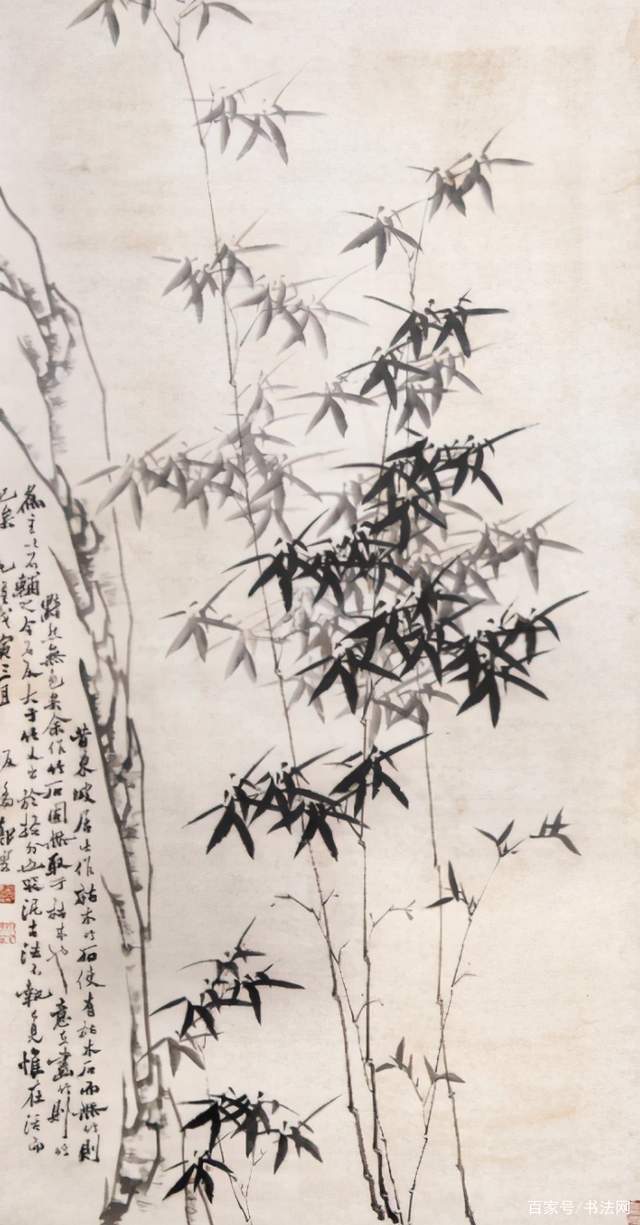 昔東坡居士作枯木竹石使有枯木石而無竹則
黯然無色矣余作竹石固無取于枯木也意在畫竹則竹
為主以石輔之今石反大于竹又出於格外也不泥古法不執己見惟在活而
已矣 乾隆戊寅三月 板橋鄭燮
百家号/书法网